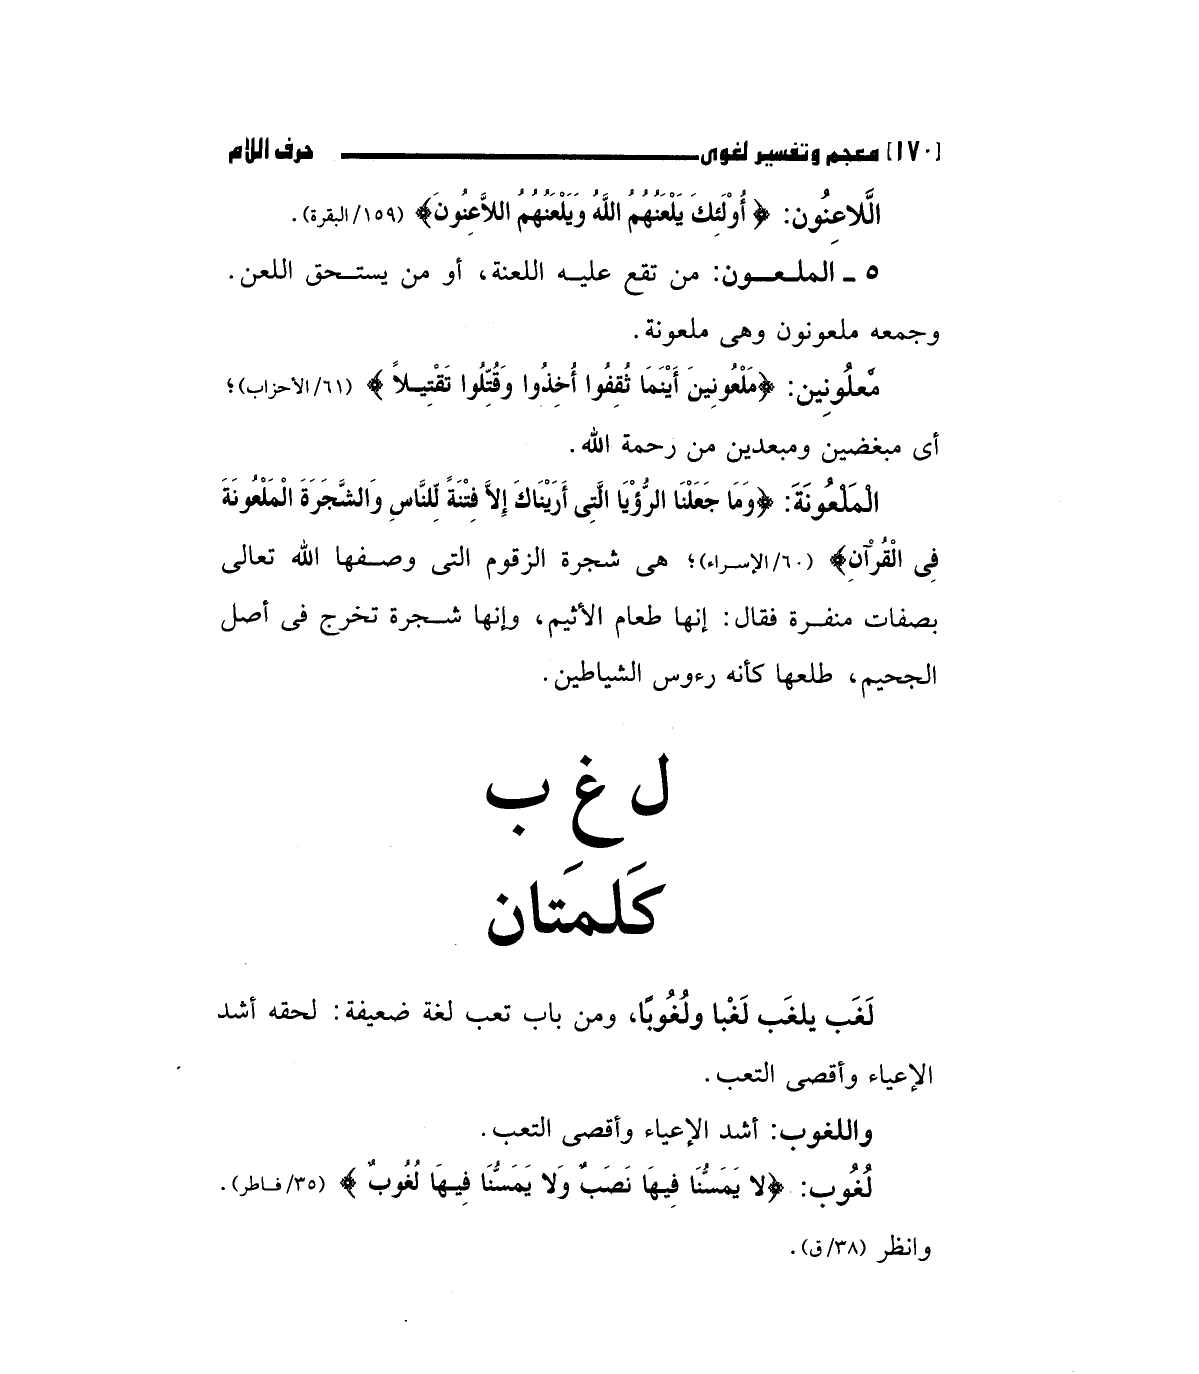 [١٧٠] معجم وتفسير لغوى حرف اللام
الَّلاعِنُون: ﴿ أُوْلَئِكَ يَلْعَنُهُمُ اللَّهُ وَيَلْعَنُهُمُ اللاَّعِنُونَ﴾ (١٥٩/البقرة).
٥ ـ الملعون: من تقع عليه اللعنة، أو من يستحق اللعن.
وجمعه ملعونون وهى ملعونة.
مْعلُونِين: ﴿مَلْعُونِينَ أَيْنَمَا ثُقِفُوا أُخِذُوا وَقُتِّلُوا تَقْتِيلاً ﴾ (٦١/الأحزاب)؛
أى مبغضين ومبعدين من رحمة الله.
الْمَلْعُونَةَ: ﴿وَمَا جَعَلْنَا الرُّؤْيَا الَّتِى أَرَيْنَاكَ إِلاَّ فِتْنَةً لِّلنَّاسِ وَالشَّجَرَةَ الْمَلْعُونَةَ
فِى الْقُرْآنِ﴾ (٦٠/الإسراء)؛ هى شجرة الزقوم التى وصفها الله تعالى
بصفات منفرة فقال: إنها طعام الأثيم، وإنها شجرة تخرج فى أصل
الجحيم، طلعها كأنه رءوس الشياطين.
ل غ ب
كَلمَتان
لَغَب يلغَب لَغْبا ولُغُوبًا، ومن باب تعب لغة ضعيفة: لحقه أشد
الإعياء وأقصى التعب.
واللغوب: أشد الإعياء وأقصى التعب.
لُغُوب: ﴿لا يَمَسُّنَا فِيهَا نَصَبٌ وَلا يَمَسُّنَا فِيهَا لُغُوبٌ ﴾ (٣٥/فاطر).
وانظر (٣٨/ق).